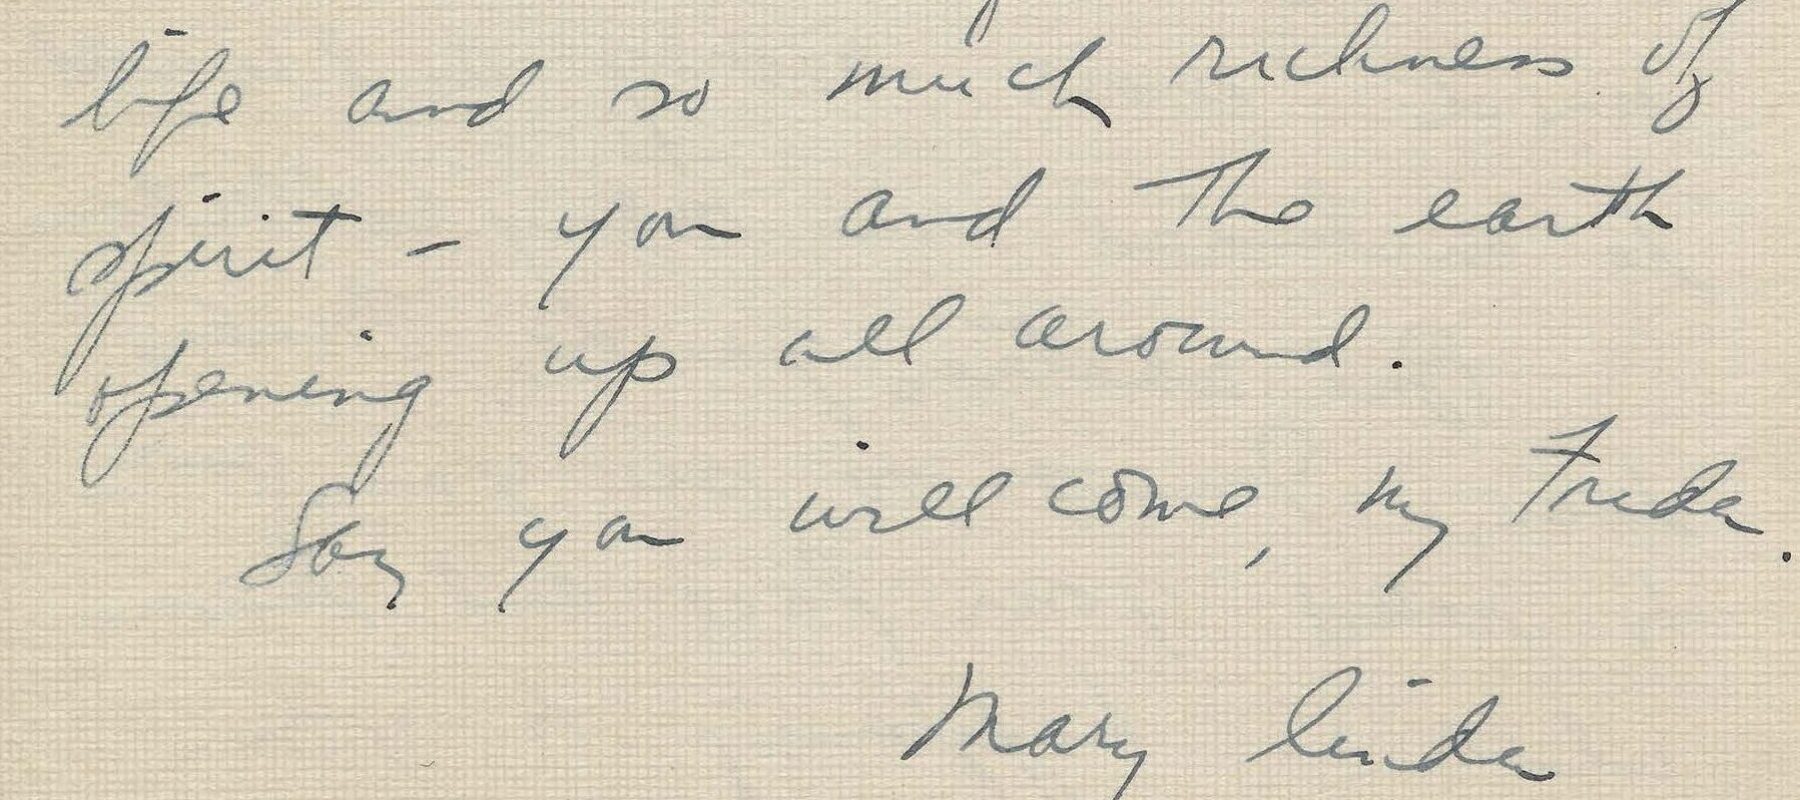 life and so much richness of
spirit – you and the earth
opening up all around.
Say you will come, my Freda.
Mary Linda